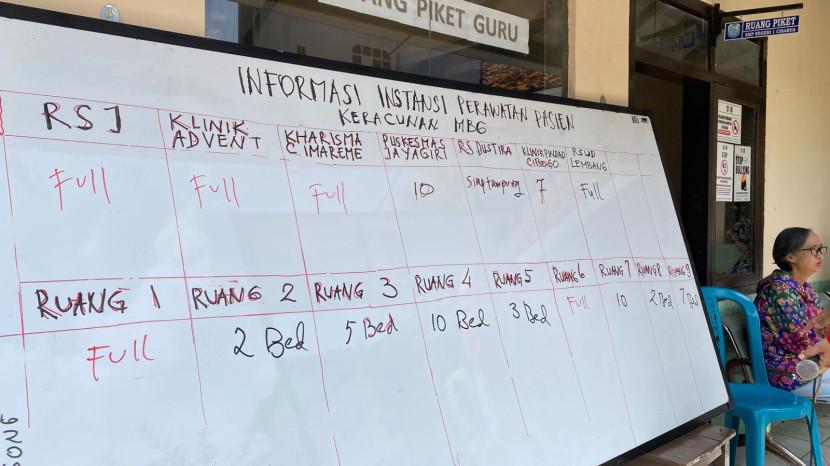 ANG PIKET GURU
RUANG PIKET
SMP NEGERI 1 CISARUA
INFORMASI INSTANSI PERAWATAN PASIEN
KERACUNAN MBG
RSJ
KLINIK ADVENT
KHARISMA CIMAREME
PUSKESMAS JAYAGIRI
RS DUSTIRA
KLINIK PINDAD CIBOGO
RSUD LEMBANG
Full
Full
Full
10
Siap tampung
7
Full
RUANG 1
RUANG 2
RUANG 3
RUANG 4
RUANG 5
RUANG 6
RUANG 7
RUANG 8
RUANG 9
Full
2 Bed
5 Bed
10 Bed
3 Bed
Full
10
2 Bed
7 Bed
STOP
BULLYING